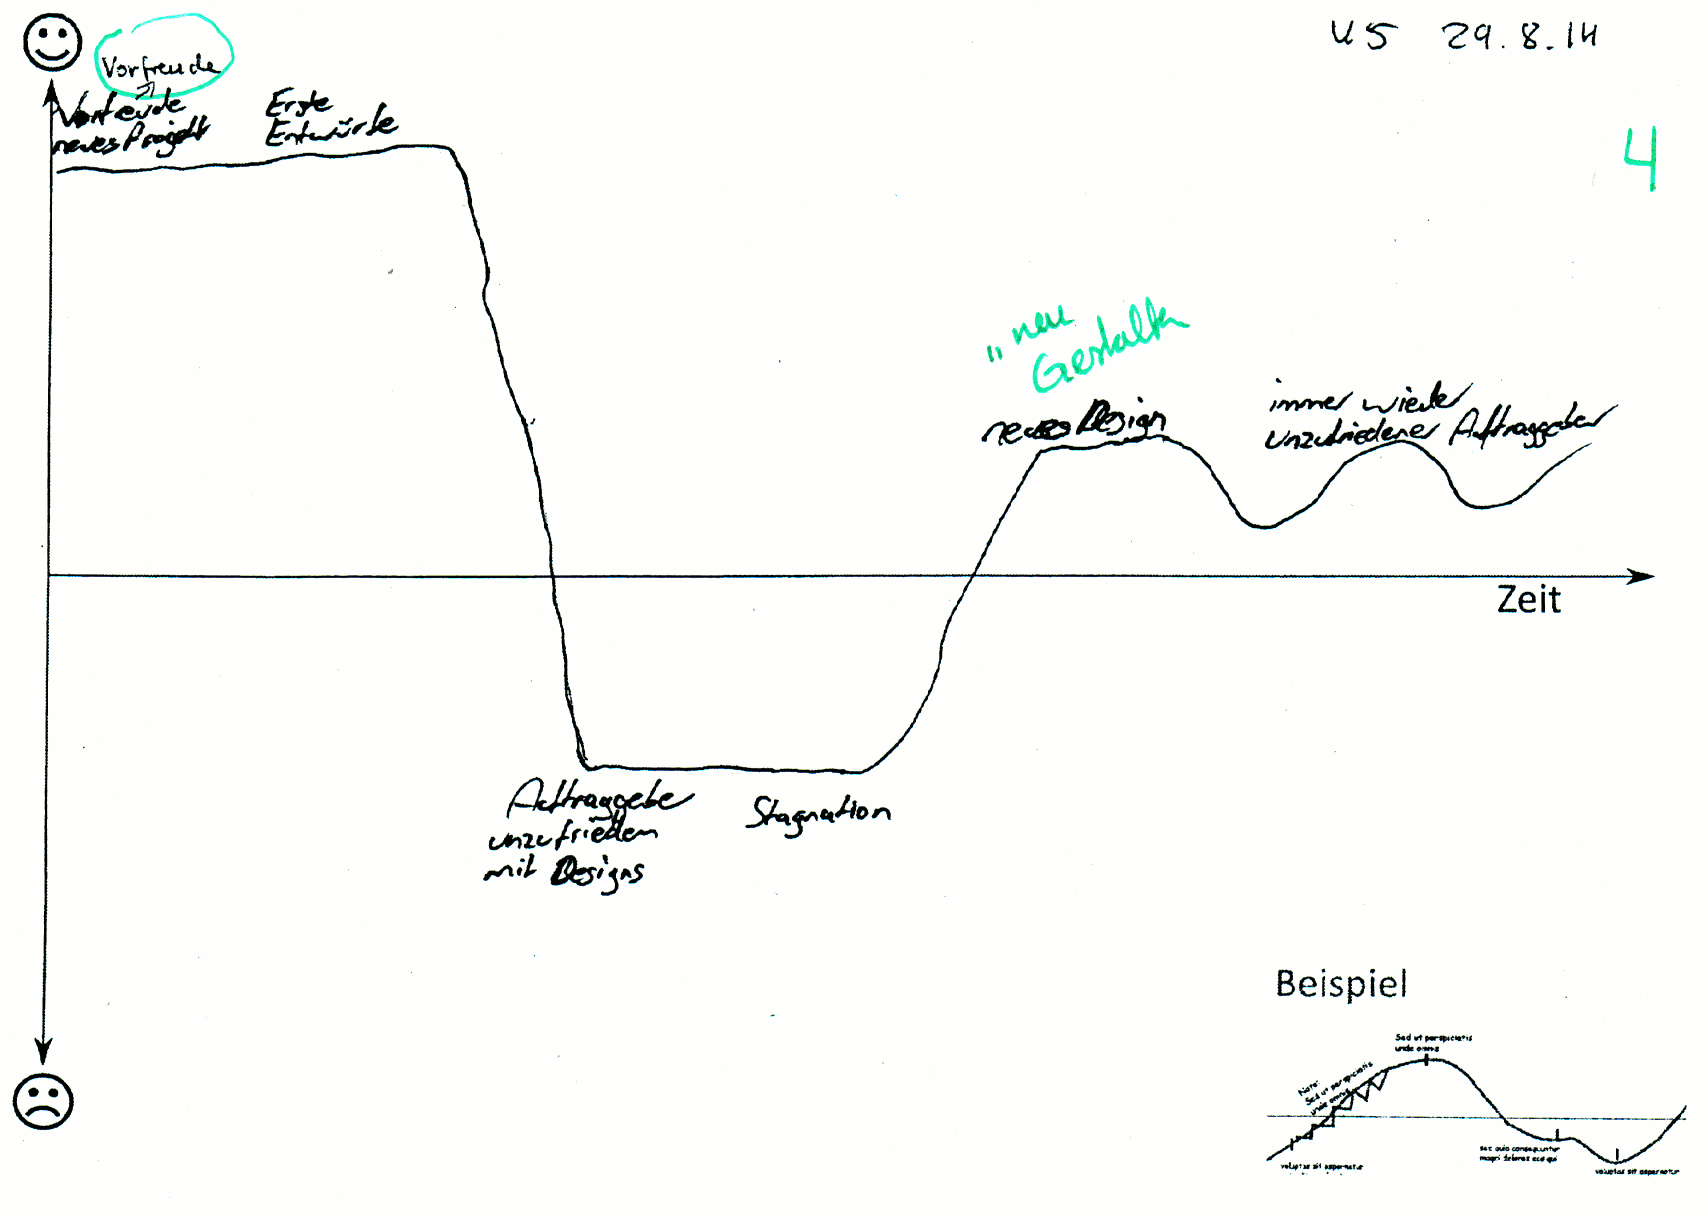 US 29.8.14
Vorfreude
Vorfreude
neues Projekt
Erste
Entwürfe
4
"neu
Gestalten
neues Design
immer wieder
unzufriedener Auftraggeber
Zeit
Auftraggeber
unzufrieden
mit Designs
Stagnation
Beispiel
Sed ut perspiciatis
unde omnis
Note:
Sed ut perspiciatis
unde omnis
voluptas sit aspernatur
sec quia consequuntur
magni dolores eos qui
voluptas sit aspernatur